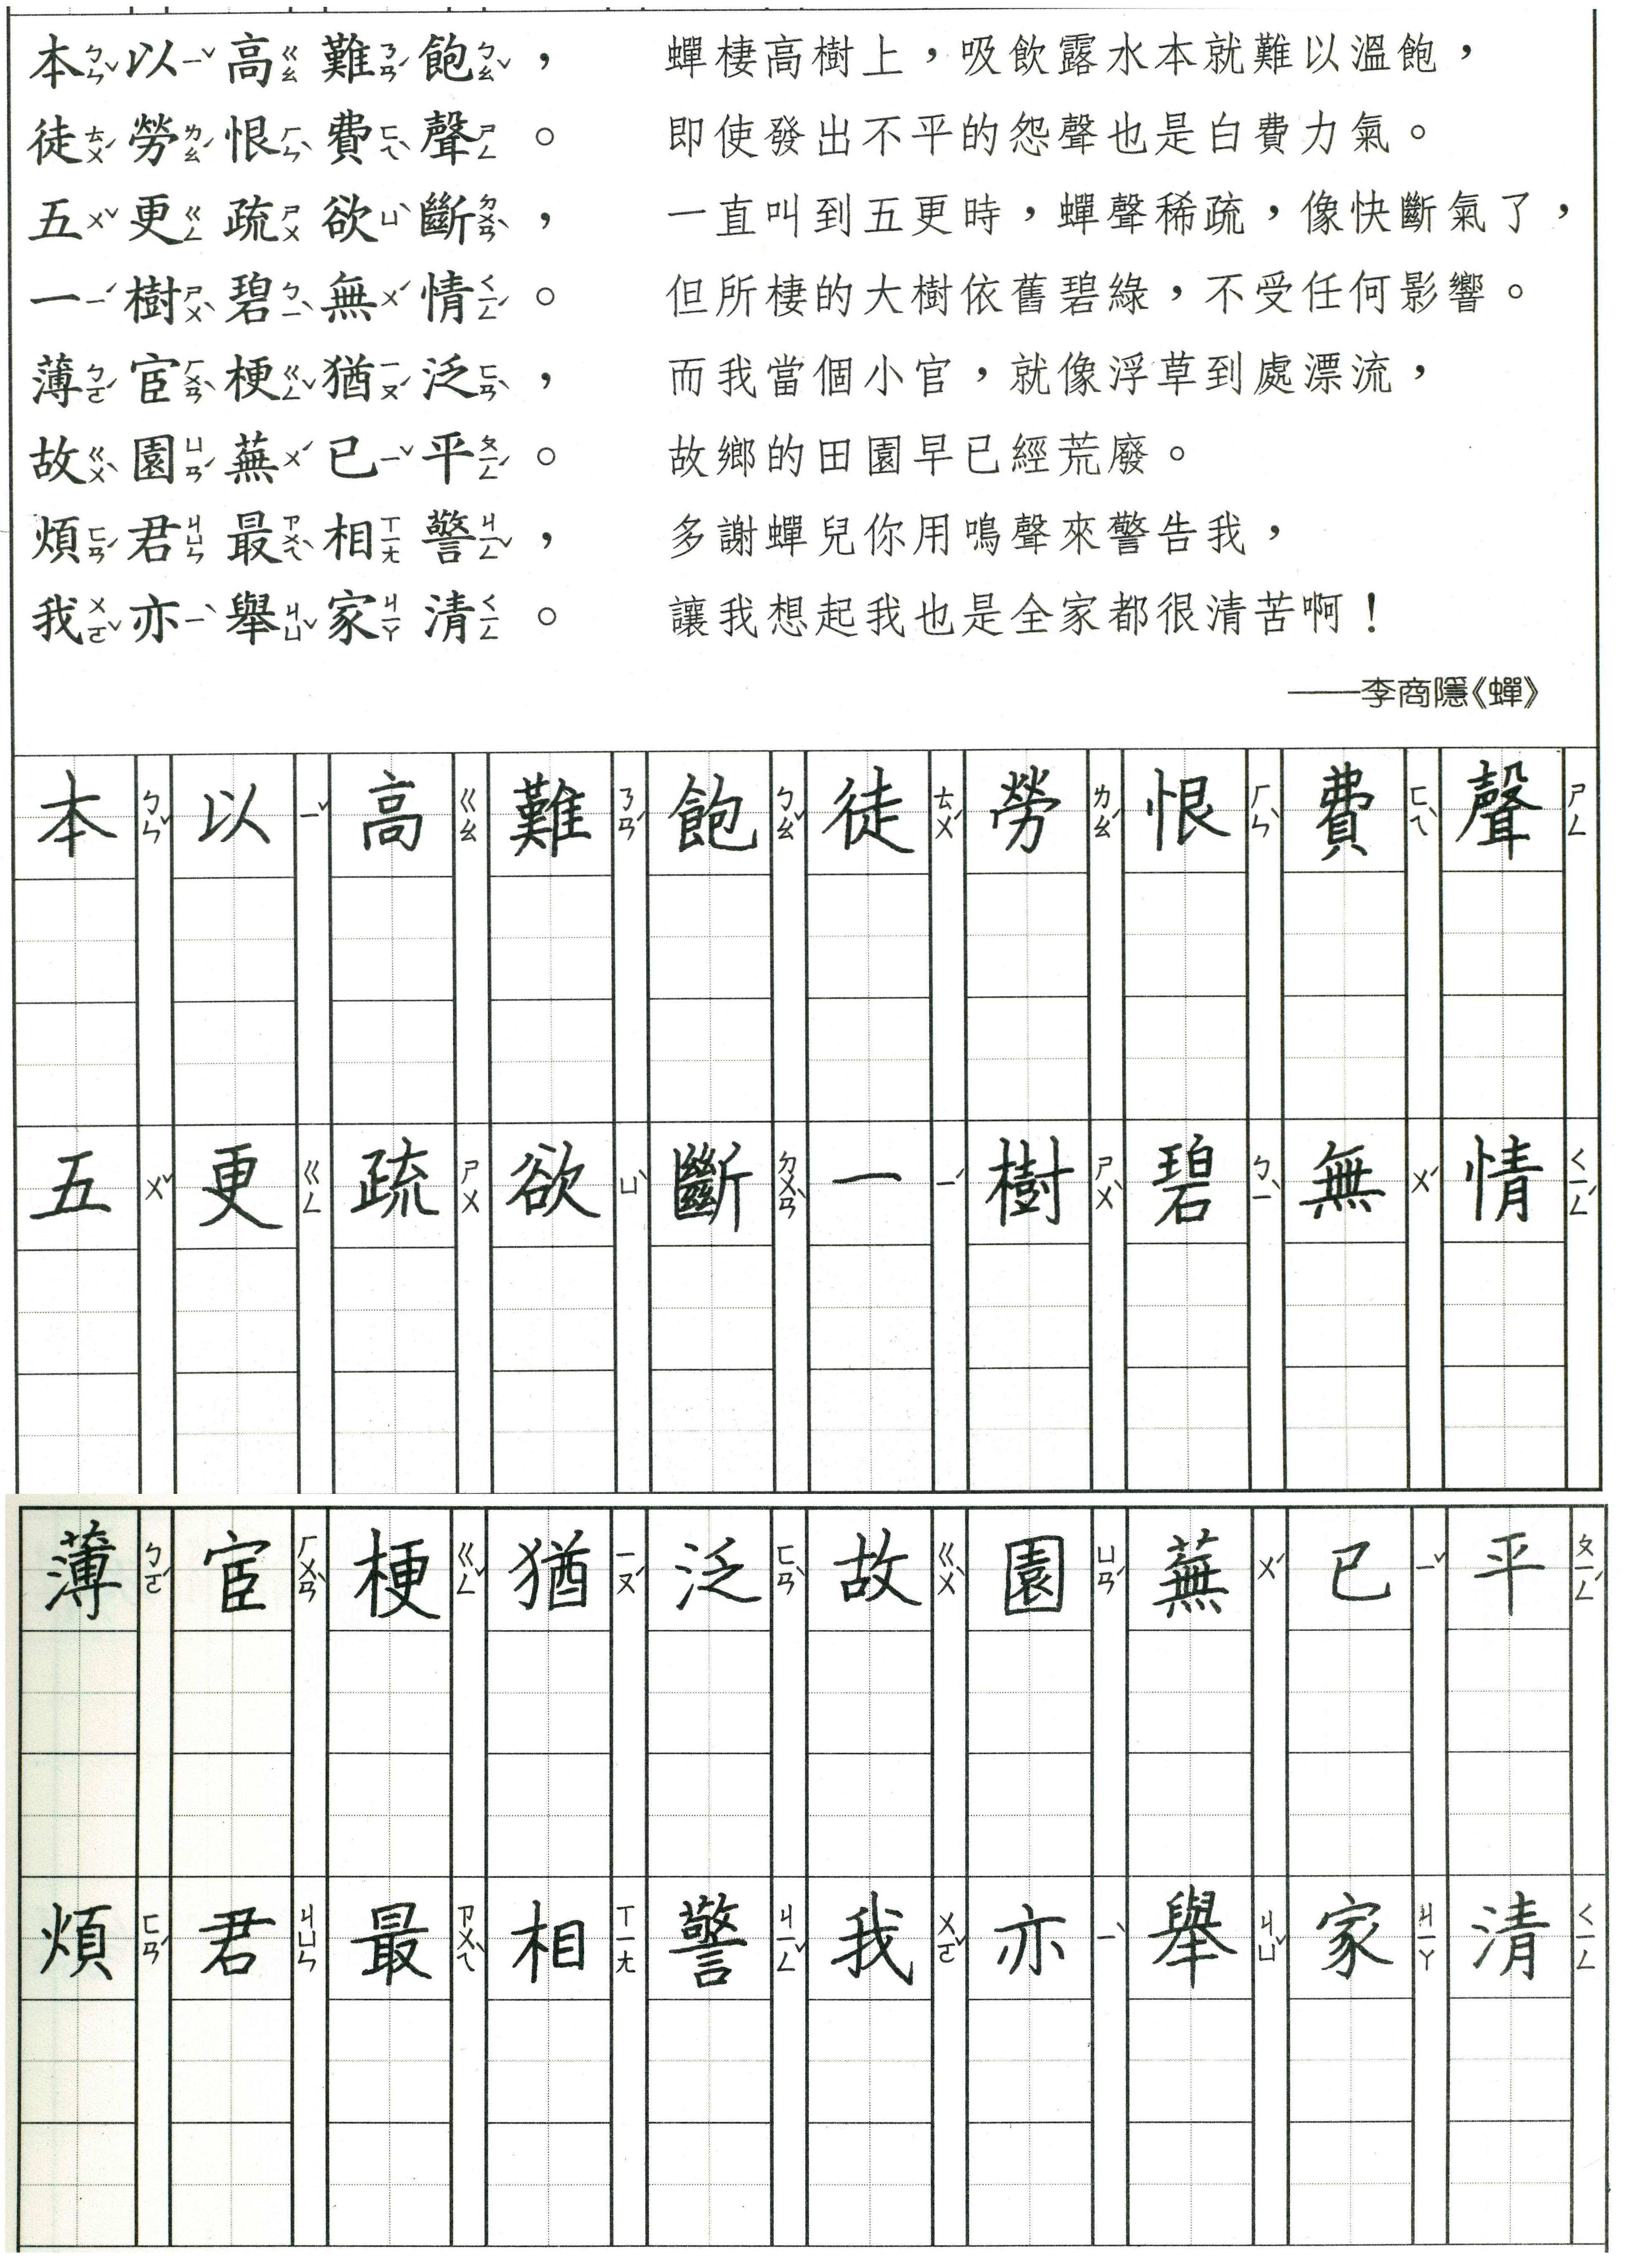 本ㄅㄣˇ以ㄧˇ高ㄍㄠ難ㄋㄢˊ飽ㄅㄠˇ， 蟬棲高樹上，吸飲露水本就難以溫飽，
徒ㄊㄨˊ勞ㄌㄠˊ恨ㄏㄣˋ費ㄈㄟˋ聲ㄕㄥ。 即使發出不平的怨聲也是白費力氣。
五ㄨˇ更ㄍㄥ疏ㄕㄨ欲ㄩˋ斷ㄉㄨㄢˋ， 一直叫到五更時，蟬聲稀疏，像快斷氣了，
一ㄧˊ樹ㄕㄨˋ碧ㄅㄧˋ無ㄨˊ情ㄑㄧㄥˊ。 但所棲的大樹依舊碧綠，不受任何影響。
薄ㄅㄛˊ宦ㄏㄨㄢˋ梗ㄍㄥˇ猶ㄧㄡˊ泛ㄈㄢˋ， 而我當個小官，就像浮草到處漂流，
故ㄍㄨˋ園ㄩㄢˊ蕪ㄨˊ已ㄧˇ平ㄆㄧㄥˊ。 故鄉的田園早已經荒廢。
煩ㄈㄢˊ君ㄐㄩㄣ最ㄗㄨㄟˋ相ㄒㄧㄤ警ㄐㄧㄥˇ， 多謝蟬兒你用鳴聲來警告我，
我ㄨㄛˇ亦ㄧˋ舉ㄐㄩˇ家ㄐㄧㄚ清ㄑㄧㄥ。 讓我想起我也是全家都很清苦啊！
——李商隱《蟬》
本ㄅㄣˇ以ㄧˇ高ㄍㄠ難ㄋㄢˊ飽ㄅㄠˇ徒ㄊㄨˊ勞ㄌㄠˊ恨ㄏㄣˋ費ㄈㄟˋ聲ㄕㄥ
五ㄨˇ更ㄍㄥ疏ㄕㄨ欲ㄩˋ斷ㄉㄨㄢˋ一ㄧˊ樹ㄕㄨˋ碧ㄅㄧˋ無ㄨˊ情ㄑㄧㄥˊ
薄ㄅㄛˊ宦ㄏㄨㄢˋ梗ㄍㄥˇ猶ㄧㄡˊ泛ㄈㄢˋ故ㄍㄨˋ園ㄩㄢˊ蕪ㄨˊ已ㄧˇ平ㄆㄧㄥˊ
煩ㄈㄢˊ君ㄐㄩㄣ最ㄗㄨㄟˋ相ㄒㄧㄤ警ㄐㄧㄥˇ我ㄨㄛˇ亦ㄧˋ舉ㄐㄩˇ家ㄐㄧㄚ清ㄑㄧㄥ